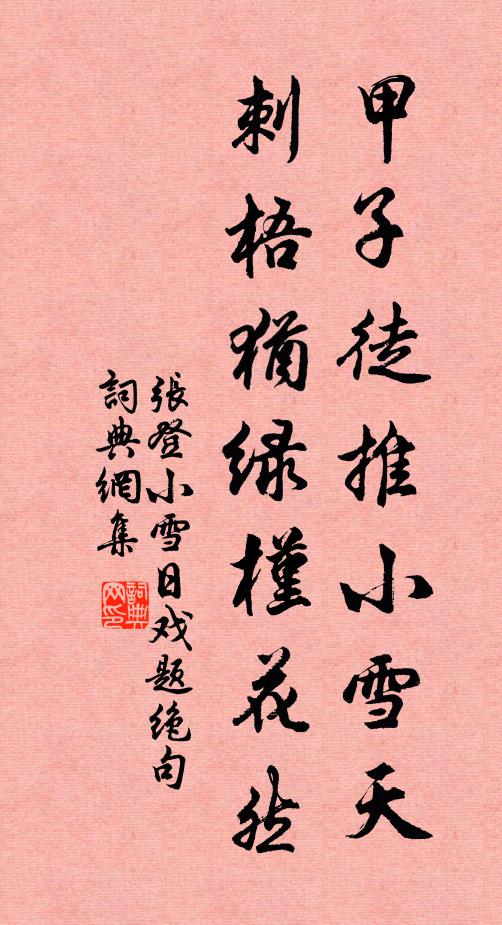 甲子徒推小雪天
刺梧猶绿槿花然
張登小雪日戏题絶句
詞典網集
詞典網印